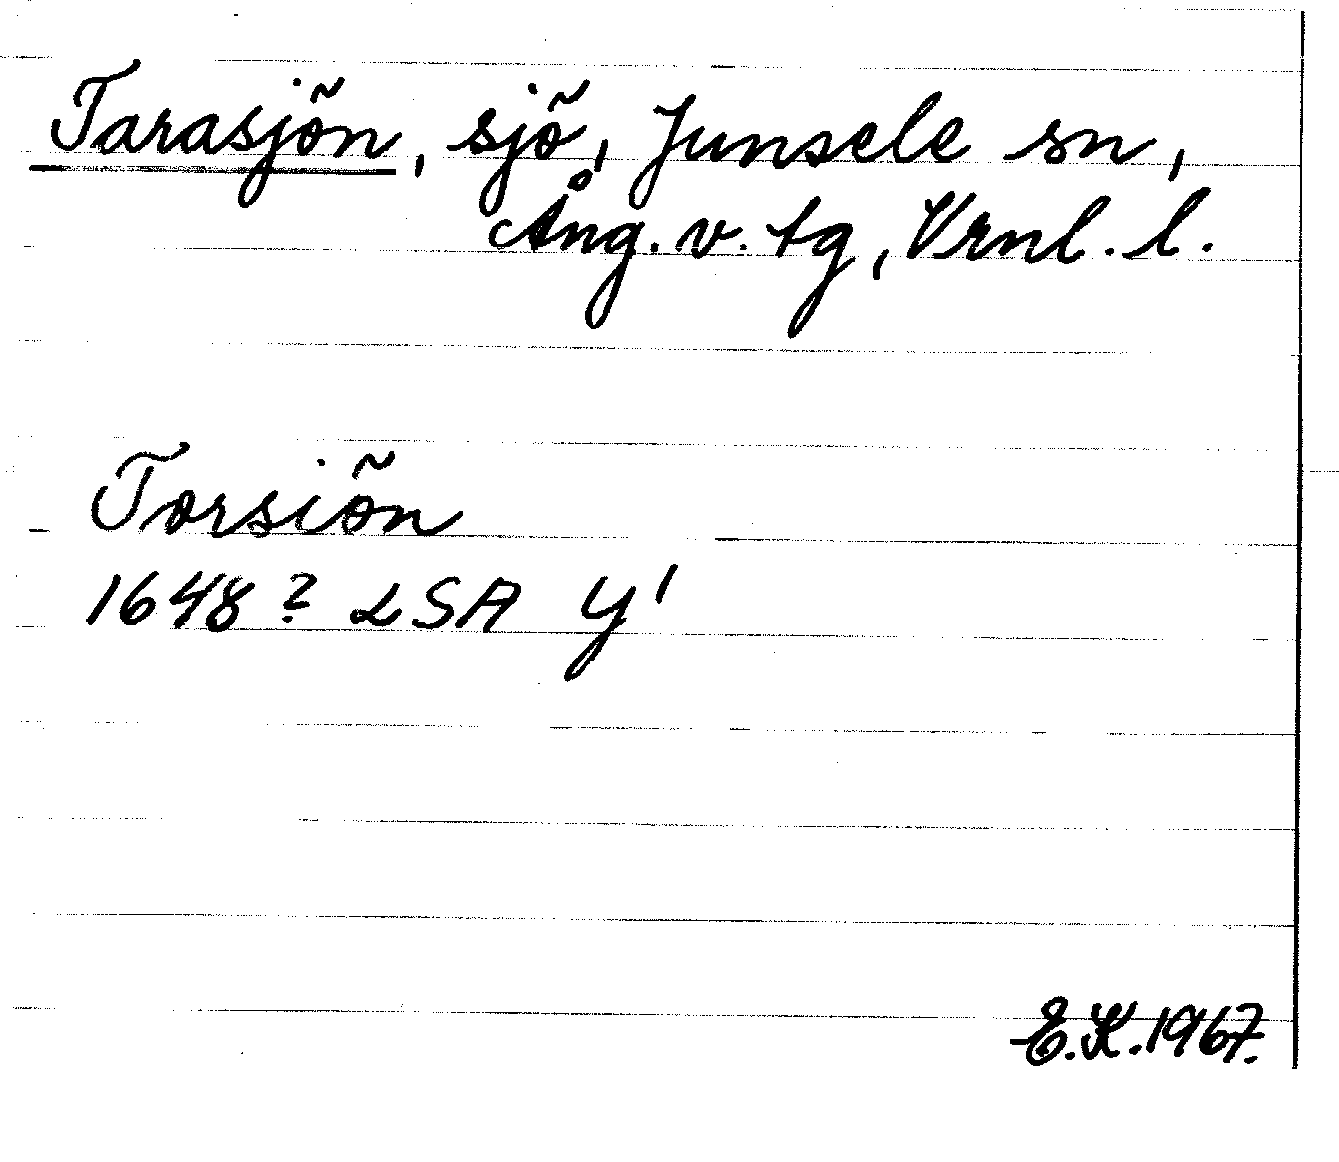 Tarasjön, sjö, Junsele sn,
Ång. v. tg, Vrnl. l.
Torsiön
1648? LSA Y'
E.K. 1967.